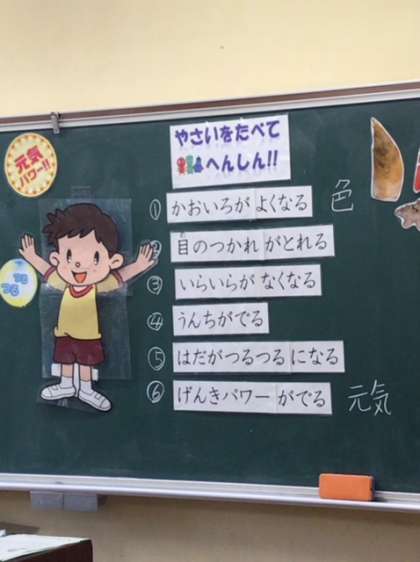 元気
パワー!!
やさいをたべて
へんしん!!
① かおいろが よくなる 色
② 目のつかれ がとれる
③ いらいらが なくなる
④ うんちがでる
⑤ はだがつるつる になる
⑥ げんきパワー がでる 元気
つる
つる